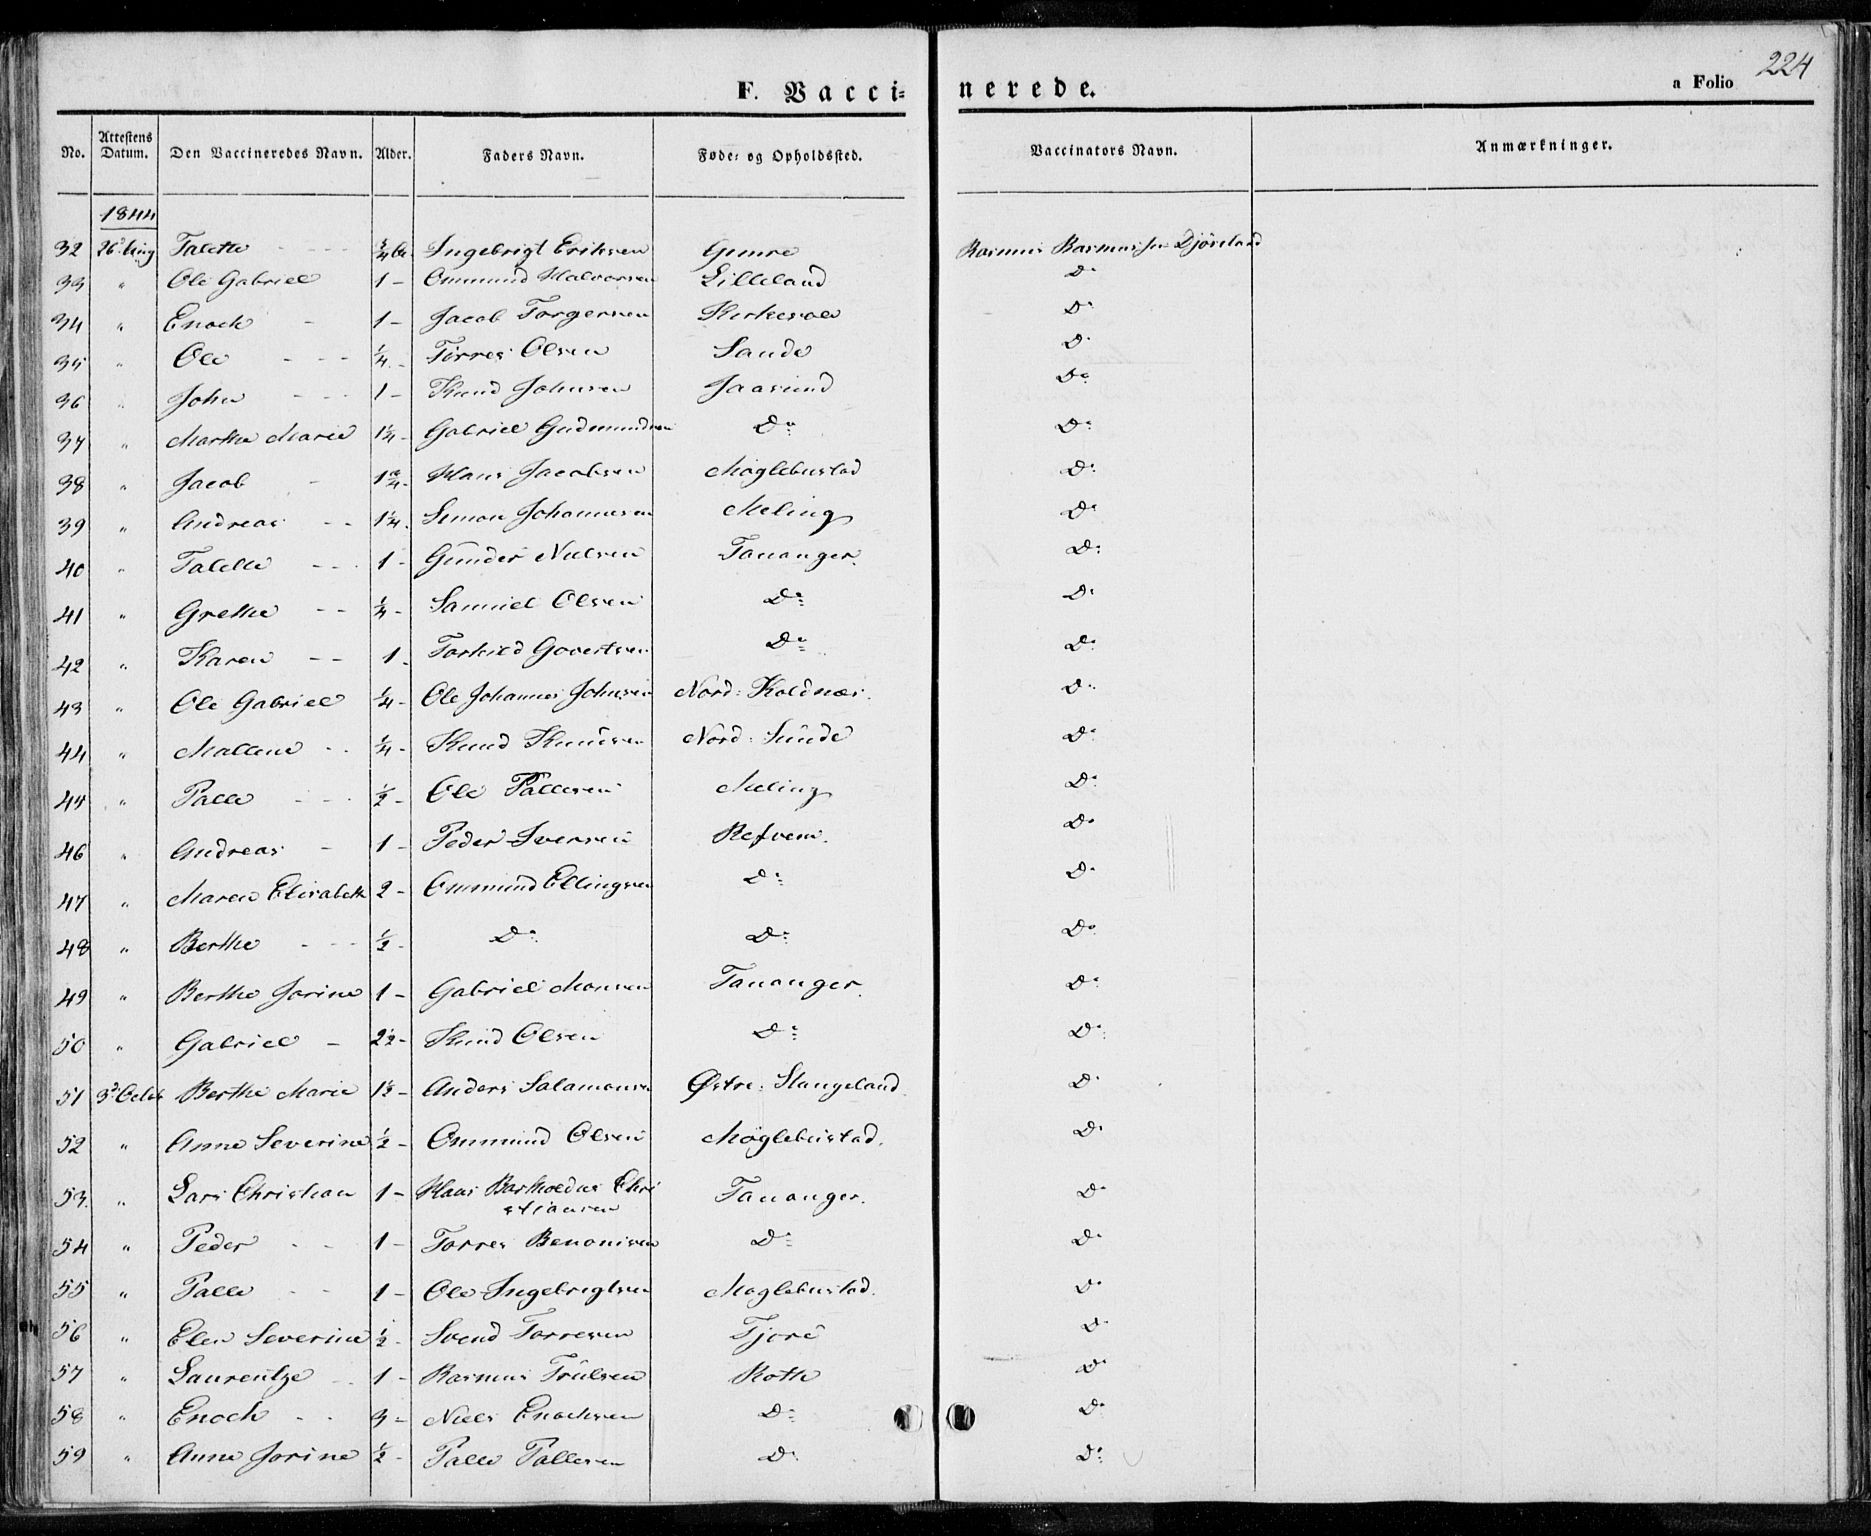 224
F. Vacci= nerede. a Folio
No. Attestens Datum. Den Vaccineredes Navn. Alder. Faders Navn. Føde= og Opholdssted. Vaccinators Navn. Anmærkninger.
1844
32 26 Aug Talette - - - 3/4 Ingebrigt Eriksen Gimre Rasmus Rasmussen
33 " Ole Gabriel 1 - Ommund Halvorsen Lilleland Do
34 " Enoch - 1 - Jacob Torgersen Do
35 " Ole - - - 1/4 - Tørres Olsen Sande Do
36 " John - - - 1 - Knud Johnsen Jaasund Do
37 " Marthe Marie 1 1/4 - Gabriel Gudmundsen Do Do
38 " Jacob - 1 3/4 - Hans Jacobsen Møglebustad Do
39 " Andreas - - 1 1/4 - Simon Johannesen Meling Do
40 " Talette - - - 1 - Gunder Nielsen Tananger. Do
41 " Grethe - - 1/4 - Samuel Olsen Do Do
42 " Karen - - 1 - Torkild Govertsen Do Do
43 " Ole Gabriel 1/4 - Ole Johannes Johnsen Nord: Koldnæs. Do
44 " Mallene - - 1/4 - Knud Knudsen Nord: Sunde Do
45 " Palle - - - 1/2 - Ole Pallesen Meling Do
46 " Andreas - 1 - Peder Iversen Refvem. Do
47 " Maren Elisabeth 2 - Ommund Ellingsen Do Do
48 " Berthe - - - 1/2 - Do Do Do
49 " Berthe Jorine 1 - Gabriel Monsen Tananger. Do
50 " Gabriel - 2 1/2 - Knud Olsen Do Do
51 3 Octob Berthe Marie 1 1/2 - Anders Salamonsen Østre: Stangeland. Do
52 " Anne Severine 1/2 - Ommund Olsen Møglebustad. Do
53. " Lars Christian 1 - Hans Bartholdus Chri Tananger. Do
stiansen
54 " Peder - - 1 - Torres Benonisen Do Do
55 " Palle - - 1 - Ole Ingebrigtsen Møglebustad. Do
56 " Elen Severine 1/2 - Svend Torresen Tjore Do
57 " Laurentze - 1 - Rasmus Trulsen Roth Do
58 " Enoch - - 3 - Niels Enochsen Do Do
59 " Anne Jorine 1/2 - Palle Pallesen Do Do